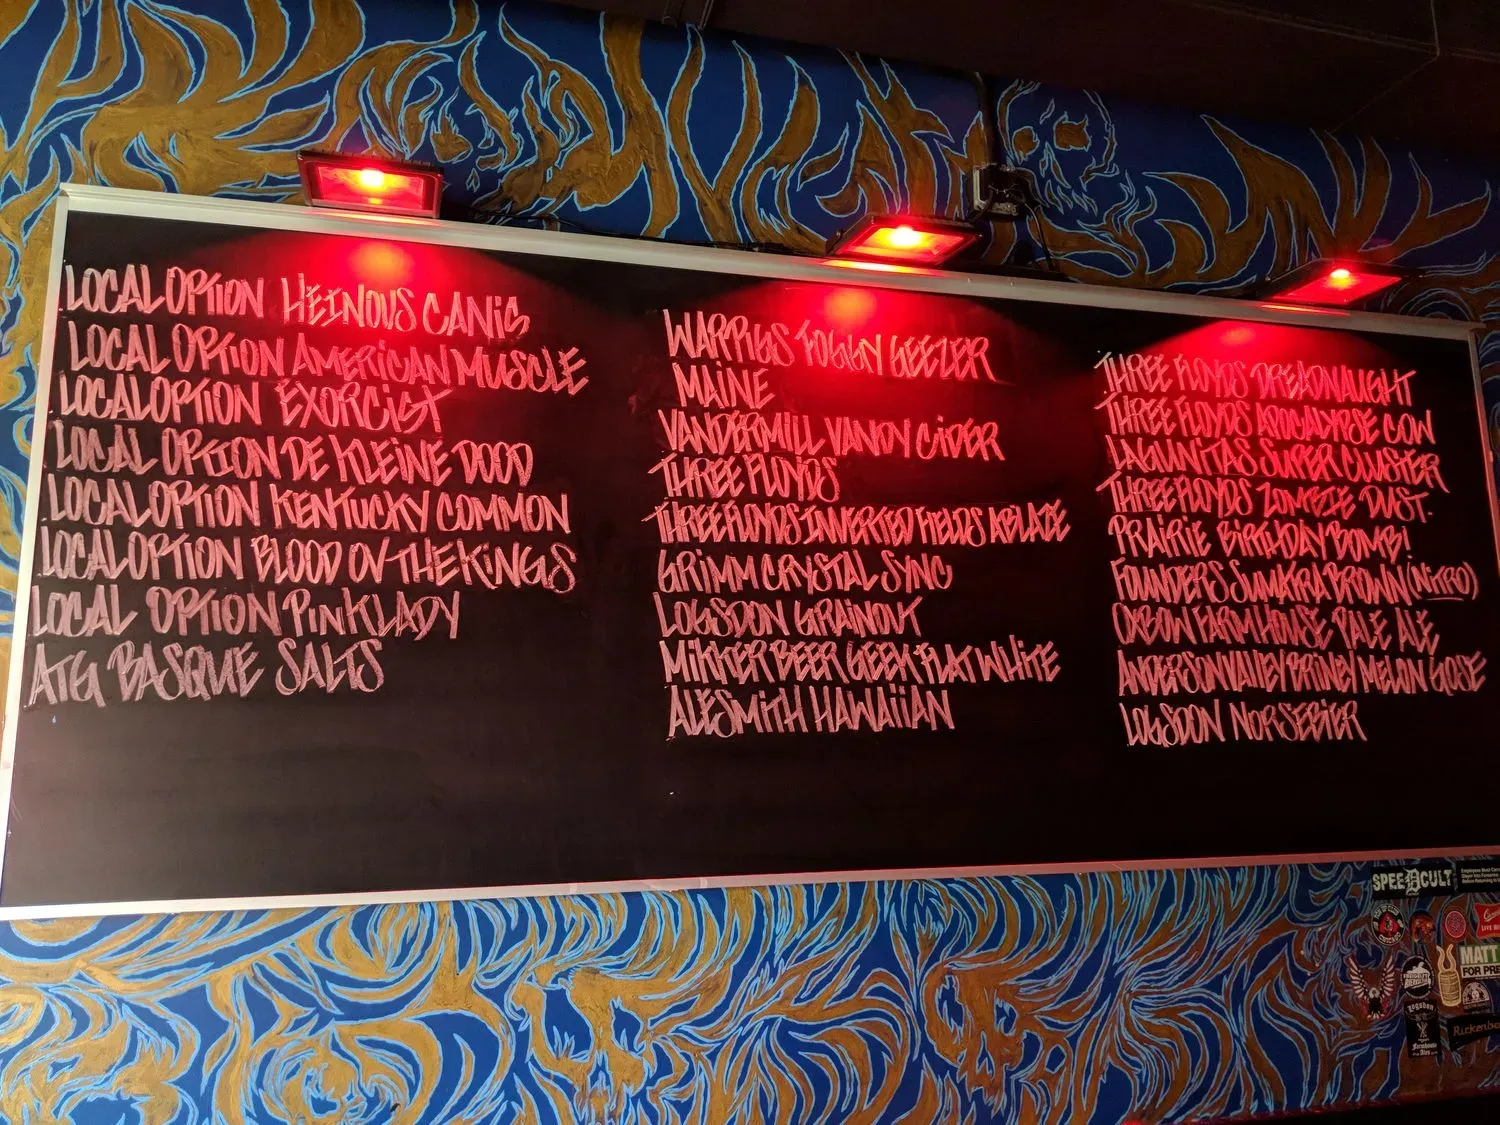 LOCAL OPTION HEINOUS CANIS
LOCAL OPTION AMERICAN MUSCLE
LOCAL OPTION EXORCIST
LOCAL OPTION DE KLEINE DOOD
LOCAL OPTION KENTUCKY COMMON
LOCAL OPTION BLOOD OV THE KINGS
LOCAL OPTION PINK LADY
ATG BASQUE SALTS
WARPIGS FOGGY GEEZER
MAINE
VANDERMILL VANDY CIDER
THREE FLOYDS
THREE FLOYDS INVERTED FIELDS ABLAZE
GRIMM CRYSTAL SYNC
LOGSDON GRAINOUT
MIKKER BEER GEEK FLAT WHITE
ALESMITH HAWAIIAN
THREE FLOYDS DREADNAUGHT
THREE FLOYDS APOCALYPSE COW
LAGUNITAS SUPER CLUSTER
THREE FLOYDS ZOMBIE DUST.
PRAIRIE BIRTHDAY BOMB!
FOUNDERS SUMATRA BROWN (NITRO)
OXBOW FARMHOUSE PALE ALE
ANDERSON VALLEY BRINEY MELON GOSE
LOGSDON NORSEBIER
SPEEDCULT
Employees Must Carve
Slayer Into Forearms
MATT
FOR PRE
Logsdon
Farmhouse
Ales